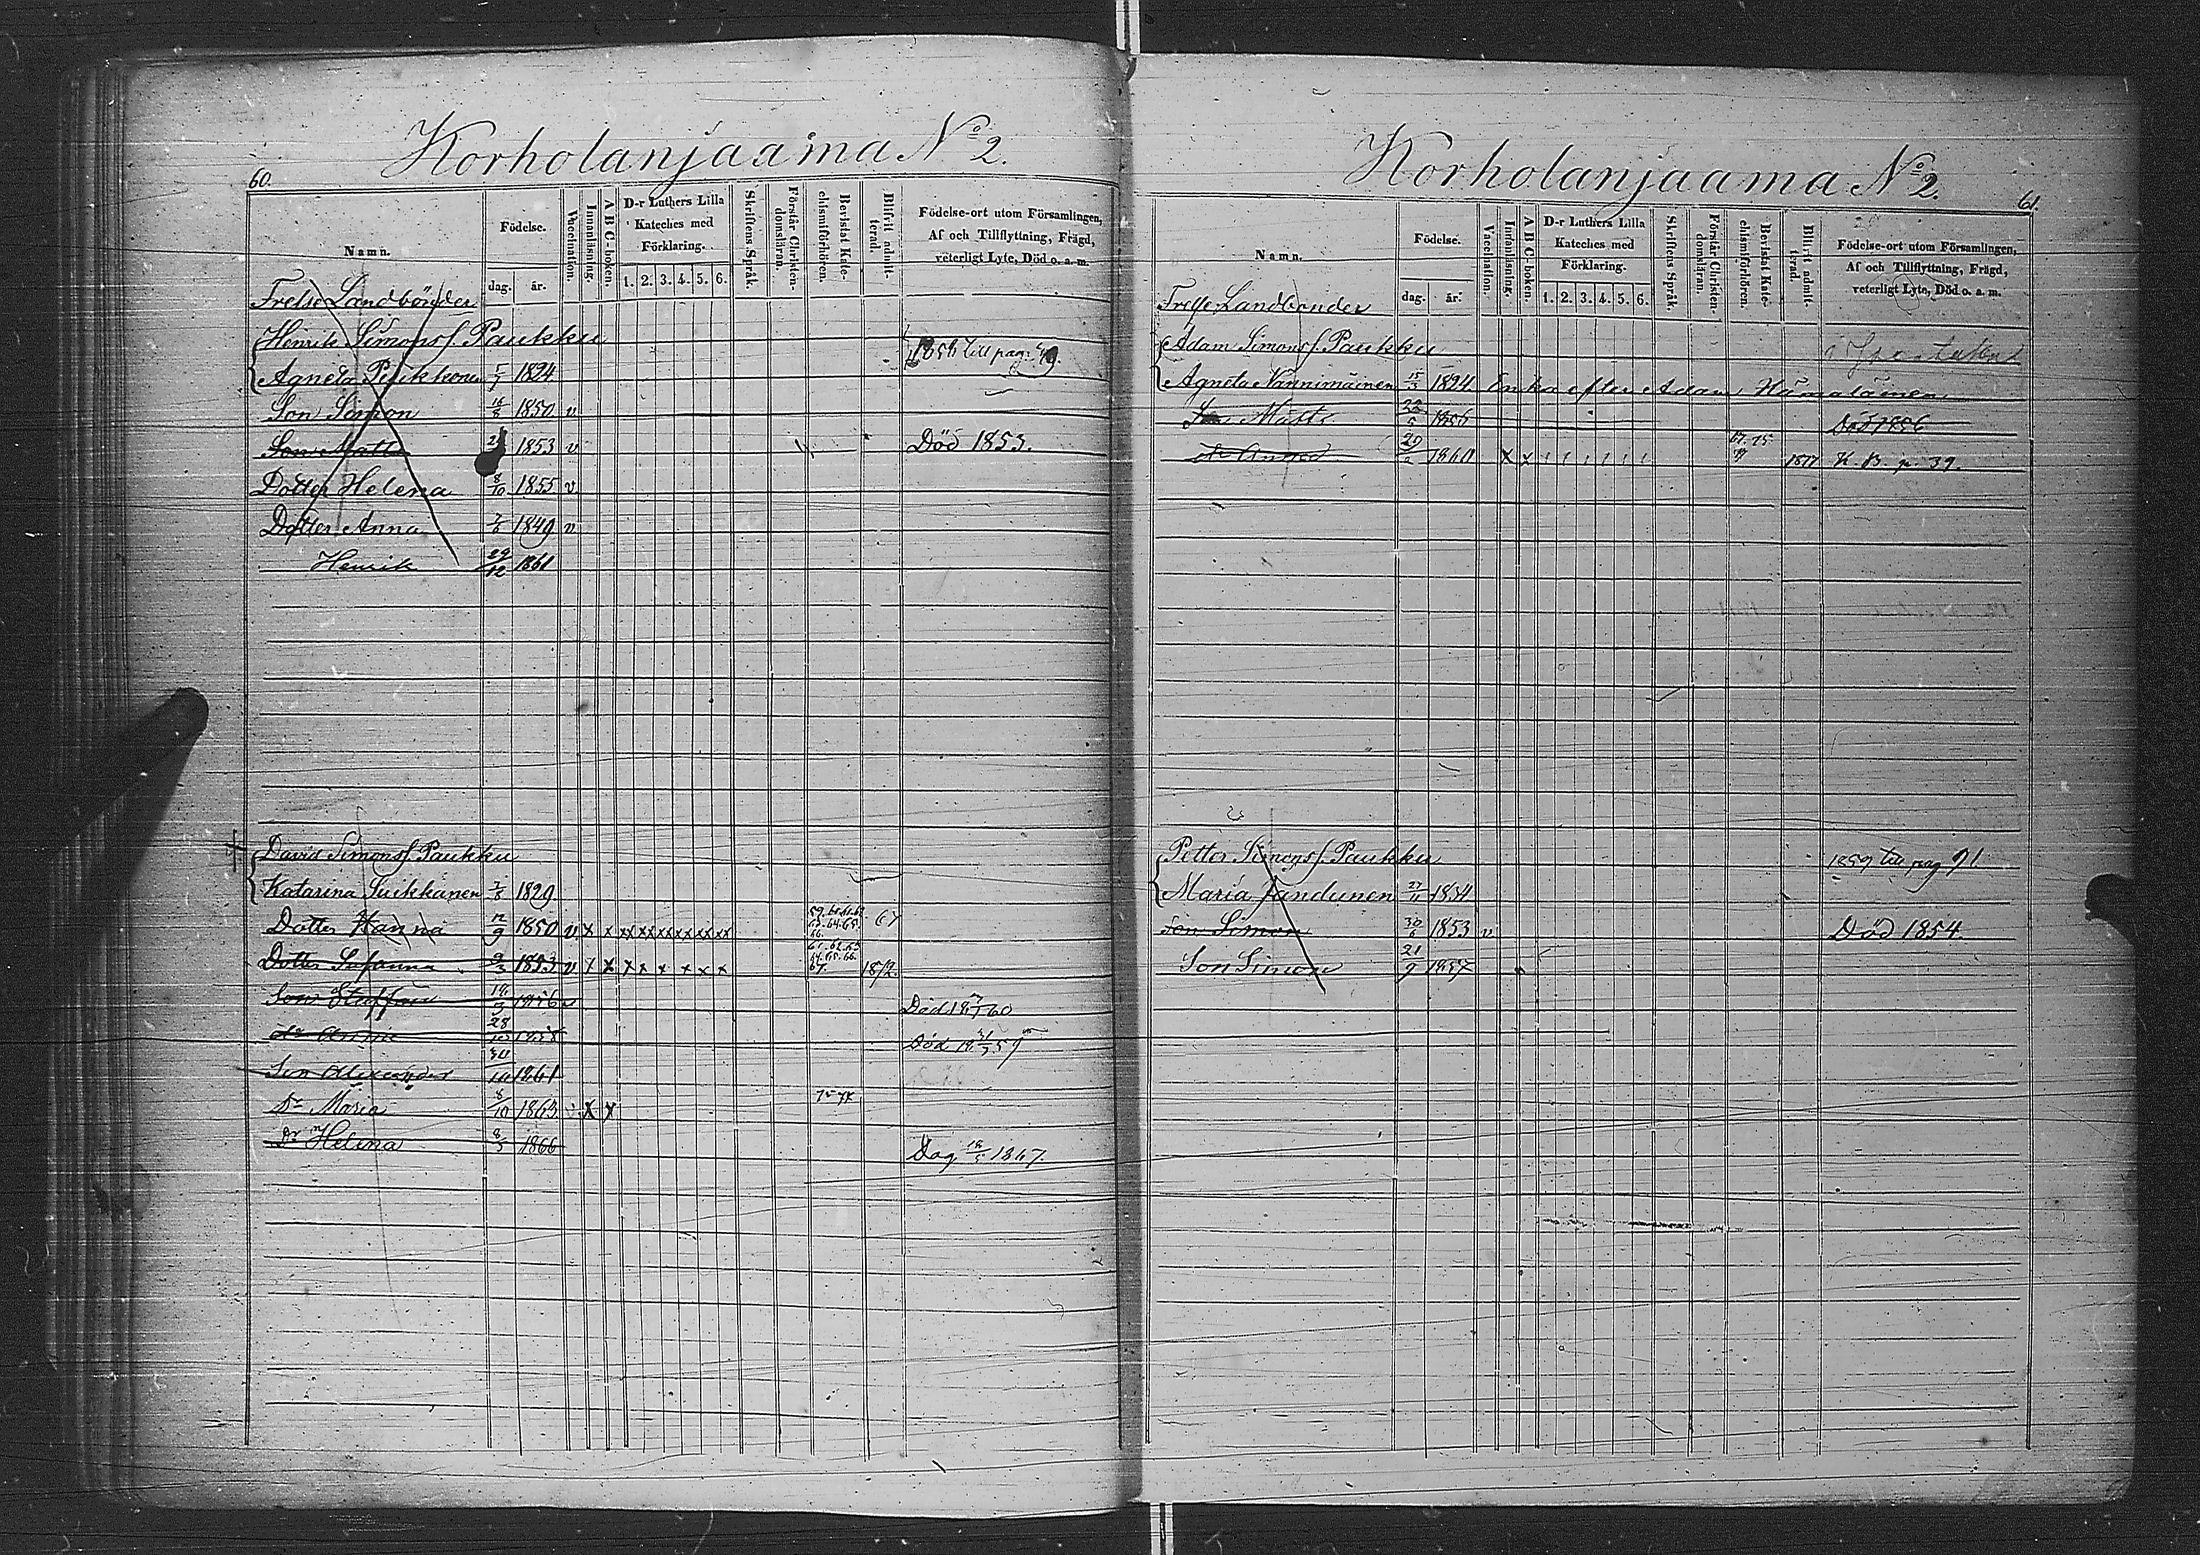 Korholanjaama No 2.
60.
Namn.
Födelse.
dag. år.
Vaccination.
Innanläsning.
A B C-boken.
D-r Luthers Lilla
Kateches med
Förklaring.
1. 2. 3. 4. 5. 6.
Skriftens Språk.
Förstår Christen-
domsläran.
Bevistat Kate-
chismiförhören.
Blifvit admit-
terad.
Födelse-ort utom Församlingen,
Af och Tillflyttning, Frägd,
veterligt Lyte, Död o. a. m.
Frelse Landbönder
Henrik Simonss. Paukku
Agneta 1824 till pag.
Son Simon 16/8 1850 v
Son Matts 1853 v Död 1853.
Dotter Helena 8/10 1855 v.
Dotter Anna 1849 v
Henrik 29/12 1861
David Simonss. Paukku
Katarina 1829
Dotter Hanna 12/9 1850 v. x x xx xx xx xx xx xx 67
Dotter Susanna 1853 v x x x x x x x x 67. 1872.
Son Staffan 1856 v Död 60
dr Anna 28 1858 Död 59
Son Alexander 30/10 1861
Dr Maria 8/10 1863 x x
Dr Helena 1866 1867
Korholanjaama No 2.
61.
Namn.
Födelse.
dag. år.
Vaccination.
Innanläsning.
A B C-boken.
D-r Luthers Lilla
Kateches med
Förklaring.
1. 2. 3. 4. 5. 6.
Skriftens Språk.
Förstår Christen-
domsläran.
Bevistat Kate-
chismiförhören.
Blifvit admit-
terad.
Födelse-ort utom Församlingen,
Af och Tillflyttning, Frägd,
veterligt Lyte, Död o. a. m.
Frelse Landbönder
Adam Simonss. Paukku
Agneta Nännimäinen 15/3 1824 Enka efter Adam Hämäläinen
Son Matts 1856 Död 1856
29 1860 x x 1877 K. B. p. 39.
Petter Simonss. Paukku 1859 till pag 91
Maria 27/11 1834
Son Simon 30/6 1853 v Död 1854.
Son Simon 21/9 1857